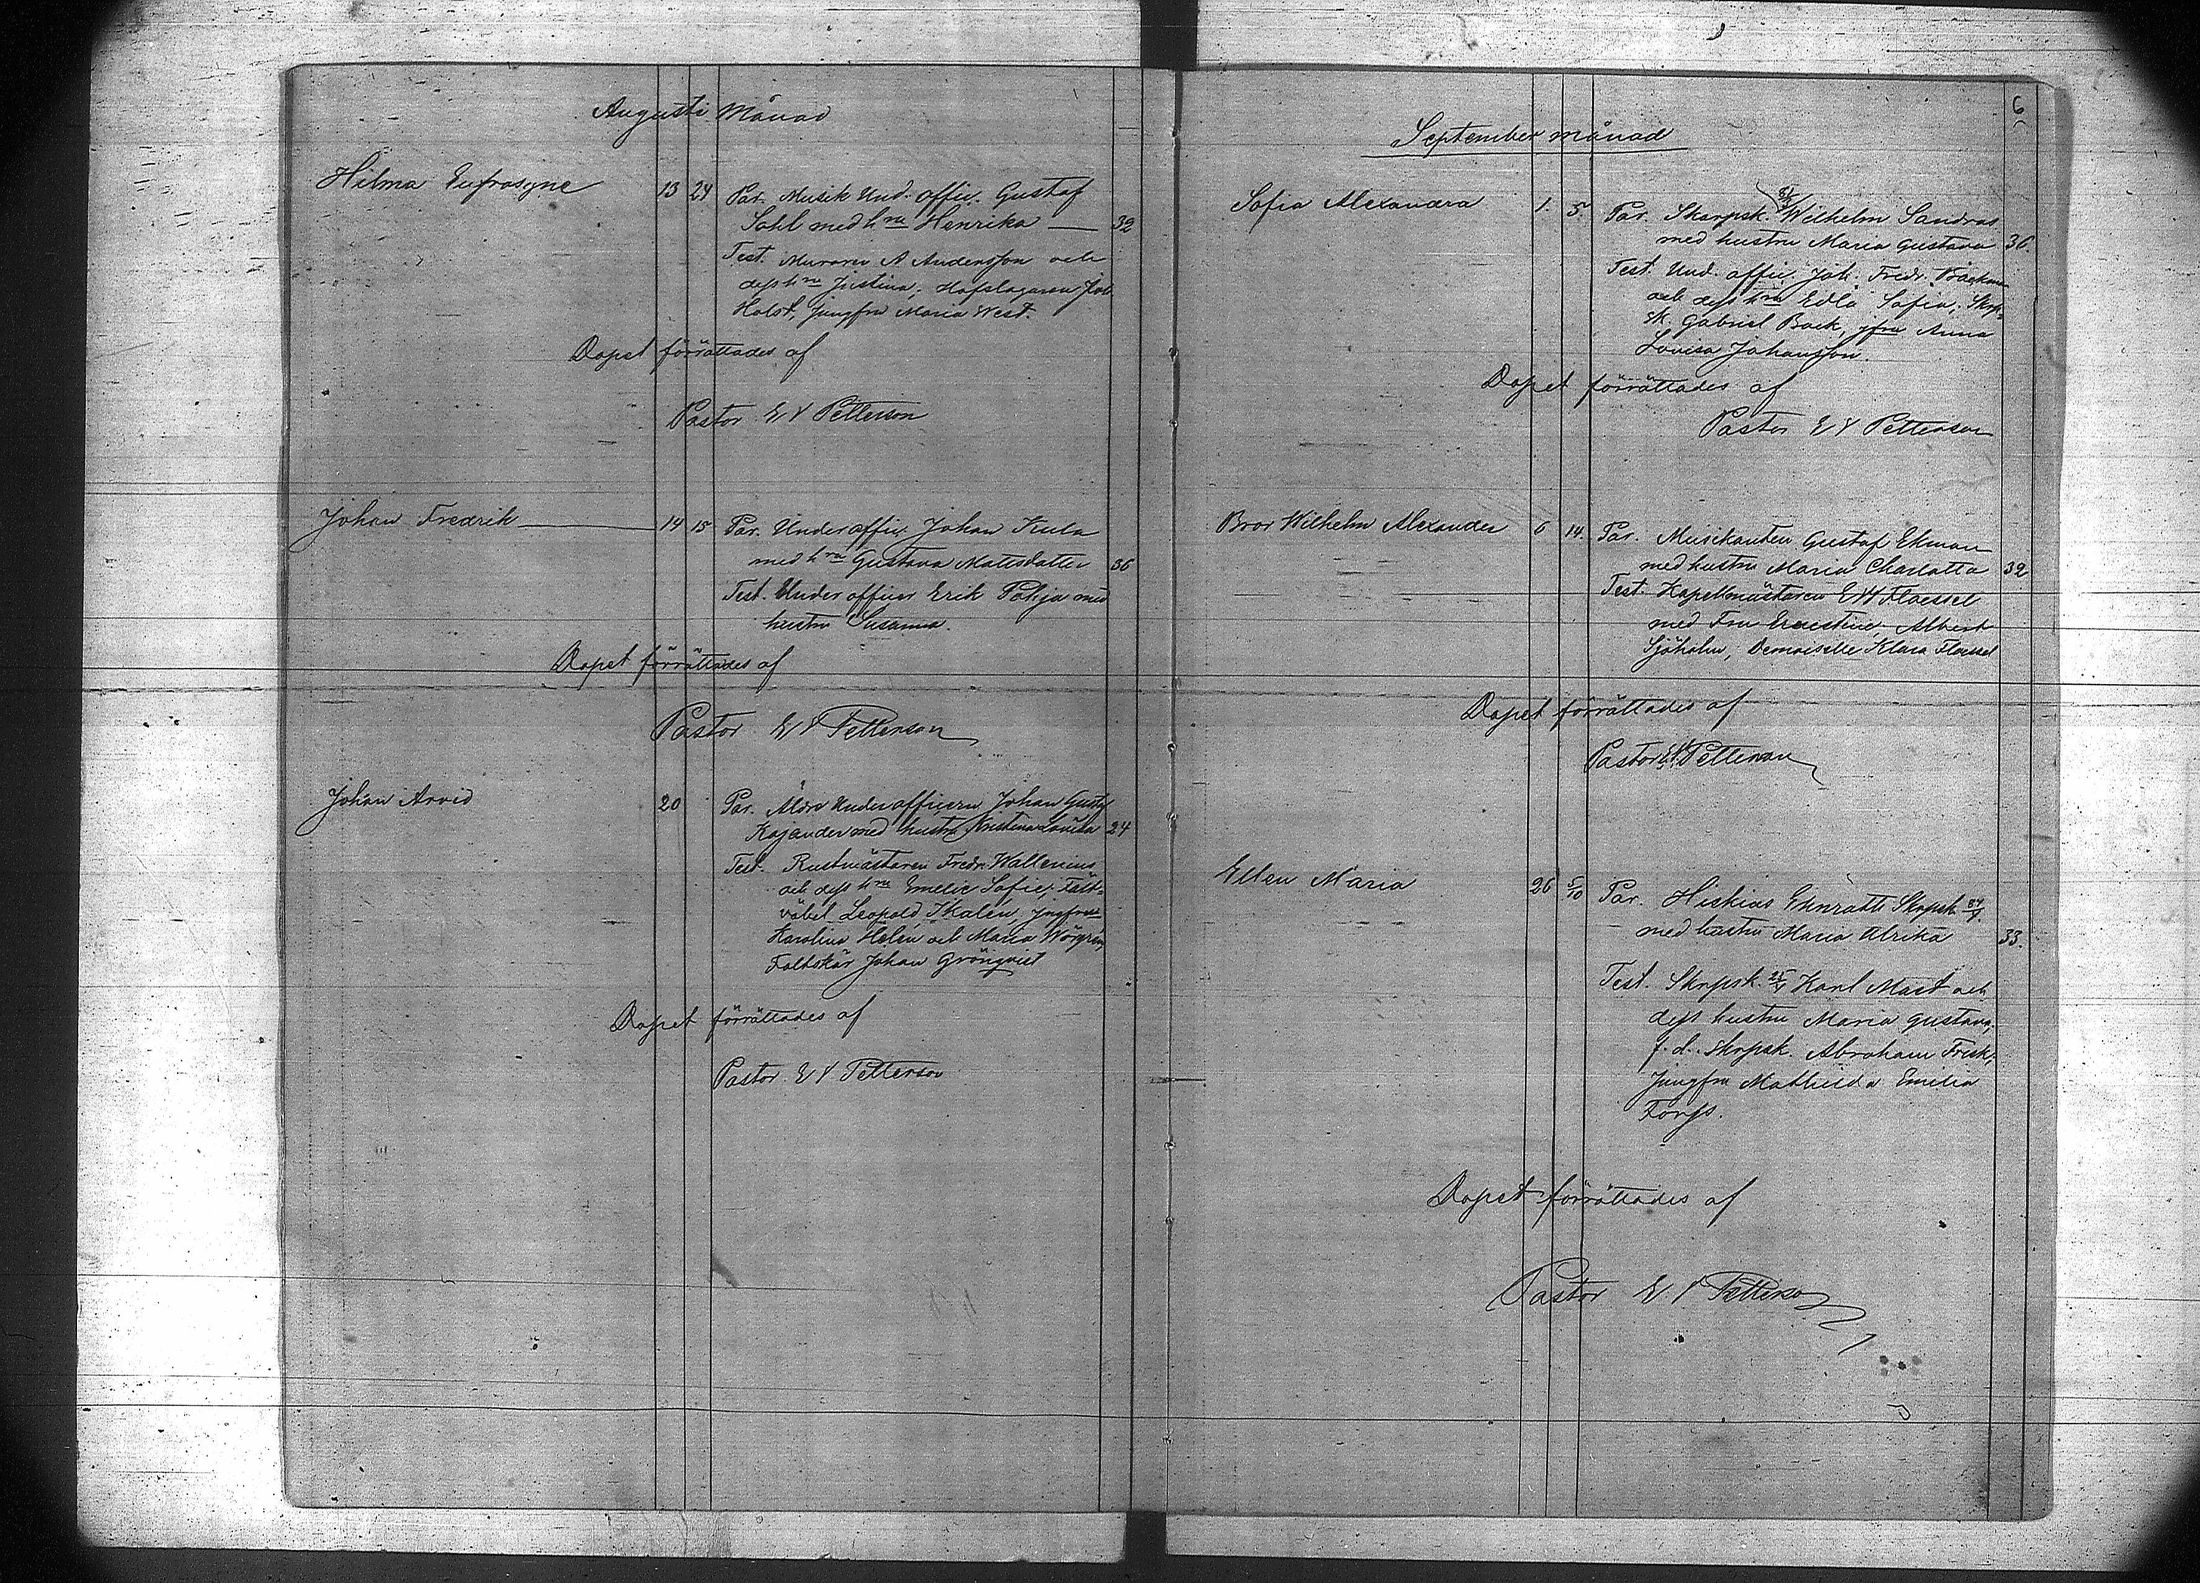 Augusti Månad
Hilma Eufrosyne 13 24 Par. Musik Und. offic. Gustaf
Sahl med hru Henrika — 32
Test. Murarn A Andersson och
dess hru Justina, Hofslagaren Joh.
Holst, Jungfru Maria West.
Dopet förrättades af
Pastor E V Petterson
Johan Fredrik — 14 15 Par. Underoffic Johan Kula
med hru Gustava Mattsdotter 36
Test. Under officer Erik Pohja med
hustru Susanna.
Dopet förrättades af
Pastor E V Petterson
Johan Arvid 20 Par. Äldre Underofficern Johan Gustaf
Kajander med hustru Kristina Lovisa 24
Test. Rustmästaren Fredr. Wallenius
och dess hru Emelie Sofie, Fält-
väbel Leopold Ikalén, Jungfrur
Karolina Helén och Maria
Faltskär Johan Grönqvist
Dopet förrättades af
Pastor E V Petterson
6
September månad
Sofia Alexandra 1. 5. Par. Skarpsk. Wilhelm Sandros
med hustru Maria Gustava 36
Test. Und. offic Joh. Fredr. Bäckman
och dess hru Edla Sofia, Skrp-
sk. Gabriel Back, jfru Anna
Lovisa Johansson.
Dopet förrättades af
Pastor E V Petterson
Bror Wilhelm Alexander 6 14. Par. Musikanten Gustaf Ekman
med hustru Maria Charlotta 32
Test. Kapellmästaren Floessel
med Fru Ernestine, Albert
Sjöholm, Demoiselle Klara Floessel
Dopet förrättades af
Pastor E V Petterson
Ellen Maria 26 5/10 Par. Hiskias Skrpsk
med hustru Maria Ulrika 33.
Test. Skrpsk. Karl Mast och
dess hustru Maria Gustava,
f. d. Skrpsk. Abraham Frisk,
Jungfru Mathilda Emilia
Forss.
Dopet förrättades af
Pastor E V Petterson